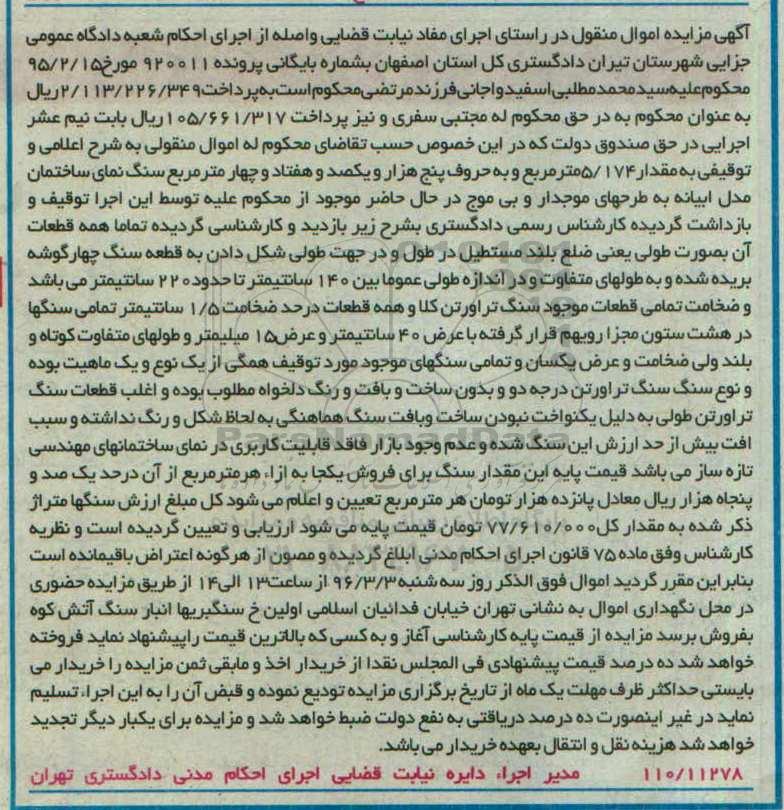 آگهی مزایده اموال منقول در راستای اجرای مفاد نیابت قضایی واصله از اجرای احکام شعبه دادگاه عمومی
جزایی شهرستان تیران دادگستری کل استان اصفهان بشماره بایگانی پرونده ۹۲۰۰۱۱ مورخ ۹۵/۲/۱۵
محکوم علیه سید محمد مطلبی اسفیدواجانی فرزند مرتضی محکوم است به پرداخت ۲/۱۱۳/۲۲۶/۳۴۹ ریال
به عنوان محکوم به در حق محکوم له مجتبی سفری و نیز پرداخت ۱۰۵/۶۶۱/۳۱۷ ریال بابت نیم عشر
اجرایی در حق صندوق دولت که در این خصوص حسب تقاضای محکوم له اموال منقولی به شرح اعلامی و
توقیفی به مقدار ۵/۱۷۴ متر مربع و به حروف پنج هزار و یکصد و هفتاد و چهار متر مربع سنگ نمای ساختمان
مدل ابیانه به طرحهای موجدار و بی موج در حال حاضر موجود از محکوم علیه توسط این اجرا توقیف و
بازداشت گردیده کارشناس رسمی دادگستری بشرح زیر بازدید و کارشناسی گردیده تماما همه قطعات
آن بصورت طولی یعنی ضلع بلند مستطیل در طول و در جهت طولی شکل دادن به قطعه سنگ چهارگوشه
بریده شده و به طولهای متفاوت و در اندازه طولی عموما بین ۱۴۰ سانتیمتر تا حدود ۲۲۰ سانتیمتر می باشد
و ضخامت تمامی قطعات موجود سنگ تراورتن کلا و همه قطعات در حد ضخامت ۱/۵ سانتیمتر تمامی سنگها
در هشت ستون مجزا رویهم قرار گرفته با عرض ۴۰ سانتیمتر و عرض ۱۵ میلیمتر و طولهای متفاوت کوتاه و
بلند ولی ضخامت و عرض یکسان و تمامی سنگهای موجود مورد توقیف همگی از یک نوع و یک ماهیت بوده
و نوع سنگ سنگ تراورتن درجه دو و بدون ساخت و بافت و رنگ دلخواه مطلوب بوده و اغلب قطعات سنگ
تراورتن طولی به دلیل یکنواخت نبودن ساخت وبافت سنگ هماهنگی به لحاظ شکل و رنگ نداشته و سبب
افت بیش از حد ارزش این سنگ شده و عدم وجود بازار فاقد قابلیت کاربری در نمای ساختمانهای مهندسی
تازه ساز می باشد قیمت پایه این مقدار سنگ برای فروش یکجا به ازاء هر متر مربع از آن در حد یک صد و
پنجاه هزار ریال معادل پانزده هزار تومان هر متر مربع تعیین و اعلام می شود کل مبلغ ارزش سنگها متراژ
ذکر شده به مقدار کل ۷۷/۶۱۰/۰۰۰ تومان قیمت پایه می شود ارزیابی و تعیین گردیده است و نظریه
کارشناس وفق ماده ۷۵ قانون اجرای احکام مدنی ابلاغ گردیده و مصون از هرگونه اعتراض باقیمانده است
بنابراین مقرر گردید اموال فوق الذکر روز سه شنبه ۹۶/۳/۳ از ساعت ۱۳ الی ۱۴ از طریق مزایده حضوری
در محل نگهداری اموال به نشانی تهران خیابان فدائیان اسلامی اولین خ سنگبریها انبار سنگ آتش کوه
بفروش برسد مزایده از قیمت پایه کارشناسی آغاز و به کسی که بالاترین قیمت را پیشنهاد نماید فروخته
خواهد شد ده درصد قیمت پیشنهادی فی المجلس نقدا از خریدار اخذ و مابقی ثمن مزایده را خریدار می
بایستی حداکثر ظرف مهلت یک ماه از تاریخ برگزاری مزایده تودیع نموده و قبض آن را به این اجراء تسلیم
نماید در غیر اینصورت ده درصد دریافتی به نفع دولت ضبط خواهد شد و مزایده برای یکبار دیگر تجدید
خواهد شد هزینه نقل و انتقال بعهده خریدار می باشد.
۱۱۰/۱۱۲۷۸ مدیر اجراء دایره نیابت قضایی اجرای احکام مدنی دادگستری تهران